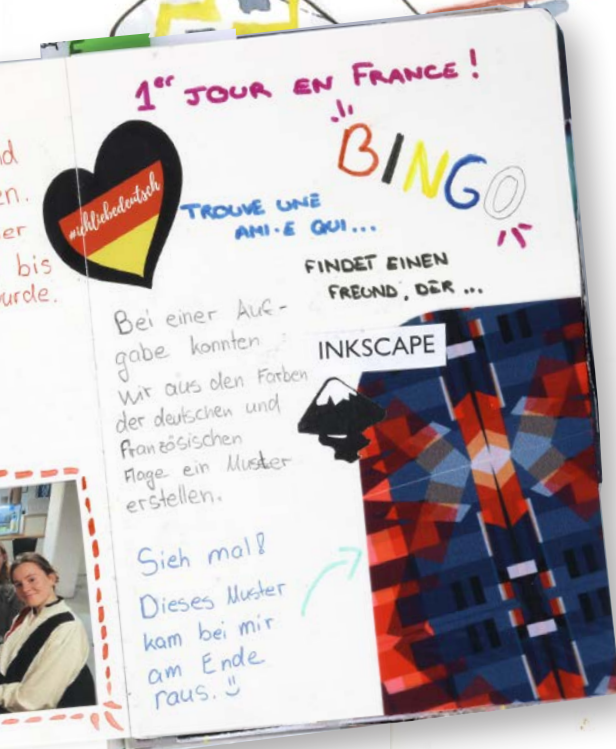 1er JOUR EN FRANCE!
BINGO
#ichliebedeutsch
TROUVE UNE
AMI·E QUI...
FINDET EINEN
FREUND, DER ...
Bei einer Auf-
gabe konnten
wir aus den Farben
der deutschen und
französischen
Flage ein Muster
erstellen.
INKSCAPE
Sieh mal!
Dieses Muster
kam bei mir
am Ende
raus.
bis